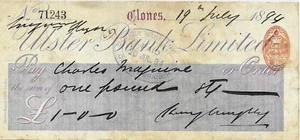 No 71243 Clones, 19th July 1894
Ulster Bank Limited
Pay Charles Maguire or Order
the sum of one pound
£1-0-0